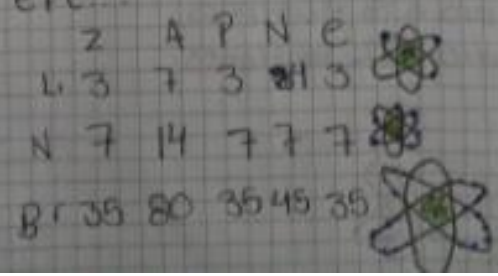 Z A P N e
Li 3 7 3 4 3
N 7 14 7 7 7
Br 35 80 35 45 35